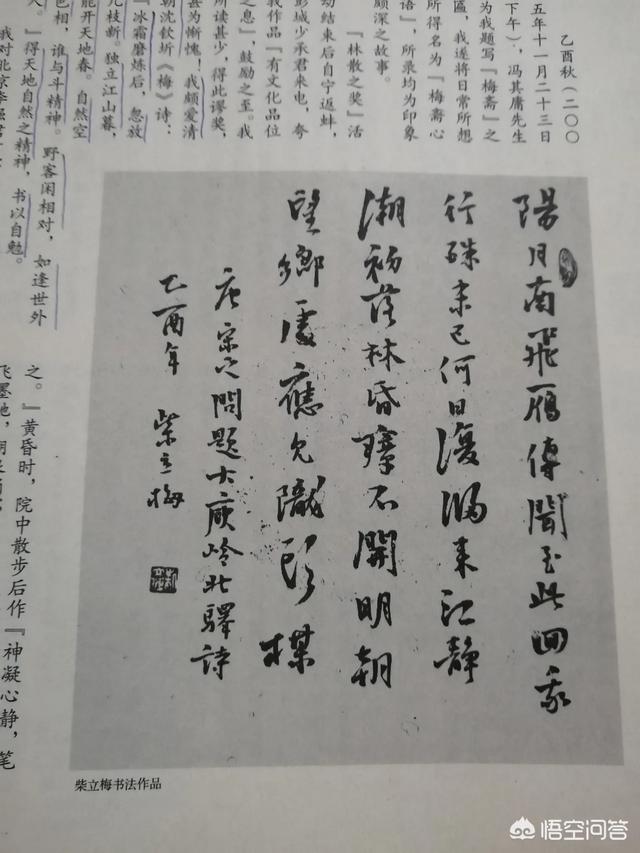 乙酉秋（二〇〇
五年十一月二十三日
下午），冯其庸先生
为我题写『梅斋』之
匾，我遂将日常所想
所得名为『梅斋心
语』，所录均为印象
颇深之故事。
『林散之奖』活
动结束后自宁返蚌，
彭城少承君来电，夸
我作品『有文化品位
之息』，鼓励之至。我
所读甚少，得此谬奖，
甚为惭愧！我颇爱清
朝沈钦圻《梅》诗：
『冰霜磨炼后，忽放
几枝新。独立江山暮，
能开天地春。自然空
色相，谁与斗精神。野客闲相对，如逢世外
人。』得天地自然之精神，书以自勉。
我对北京李强君
陽月南飛雁傳聞至此回我
行殊未已何日復歸來江靜
潮初落林昏瘴不開明朝
望鄉處應見隴頭梅
唐宋之問題大庾岭北驛詩
乙酉年 柴立梅
之。』黄昏时，院中散步后作『神凝心静，笔
柴立梅书法作品
悟空问答